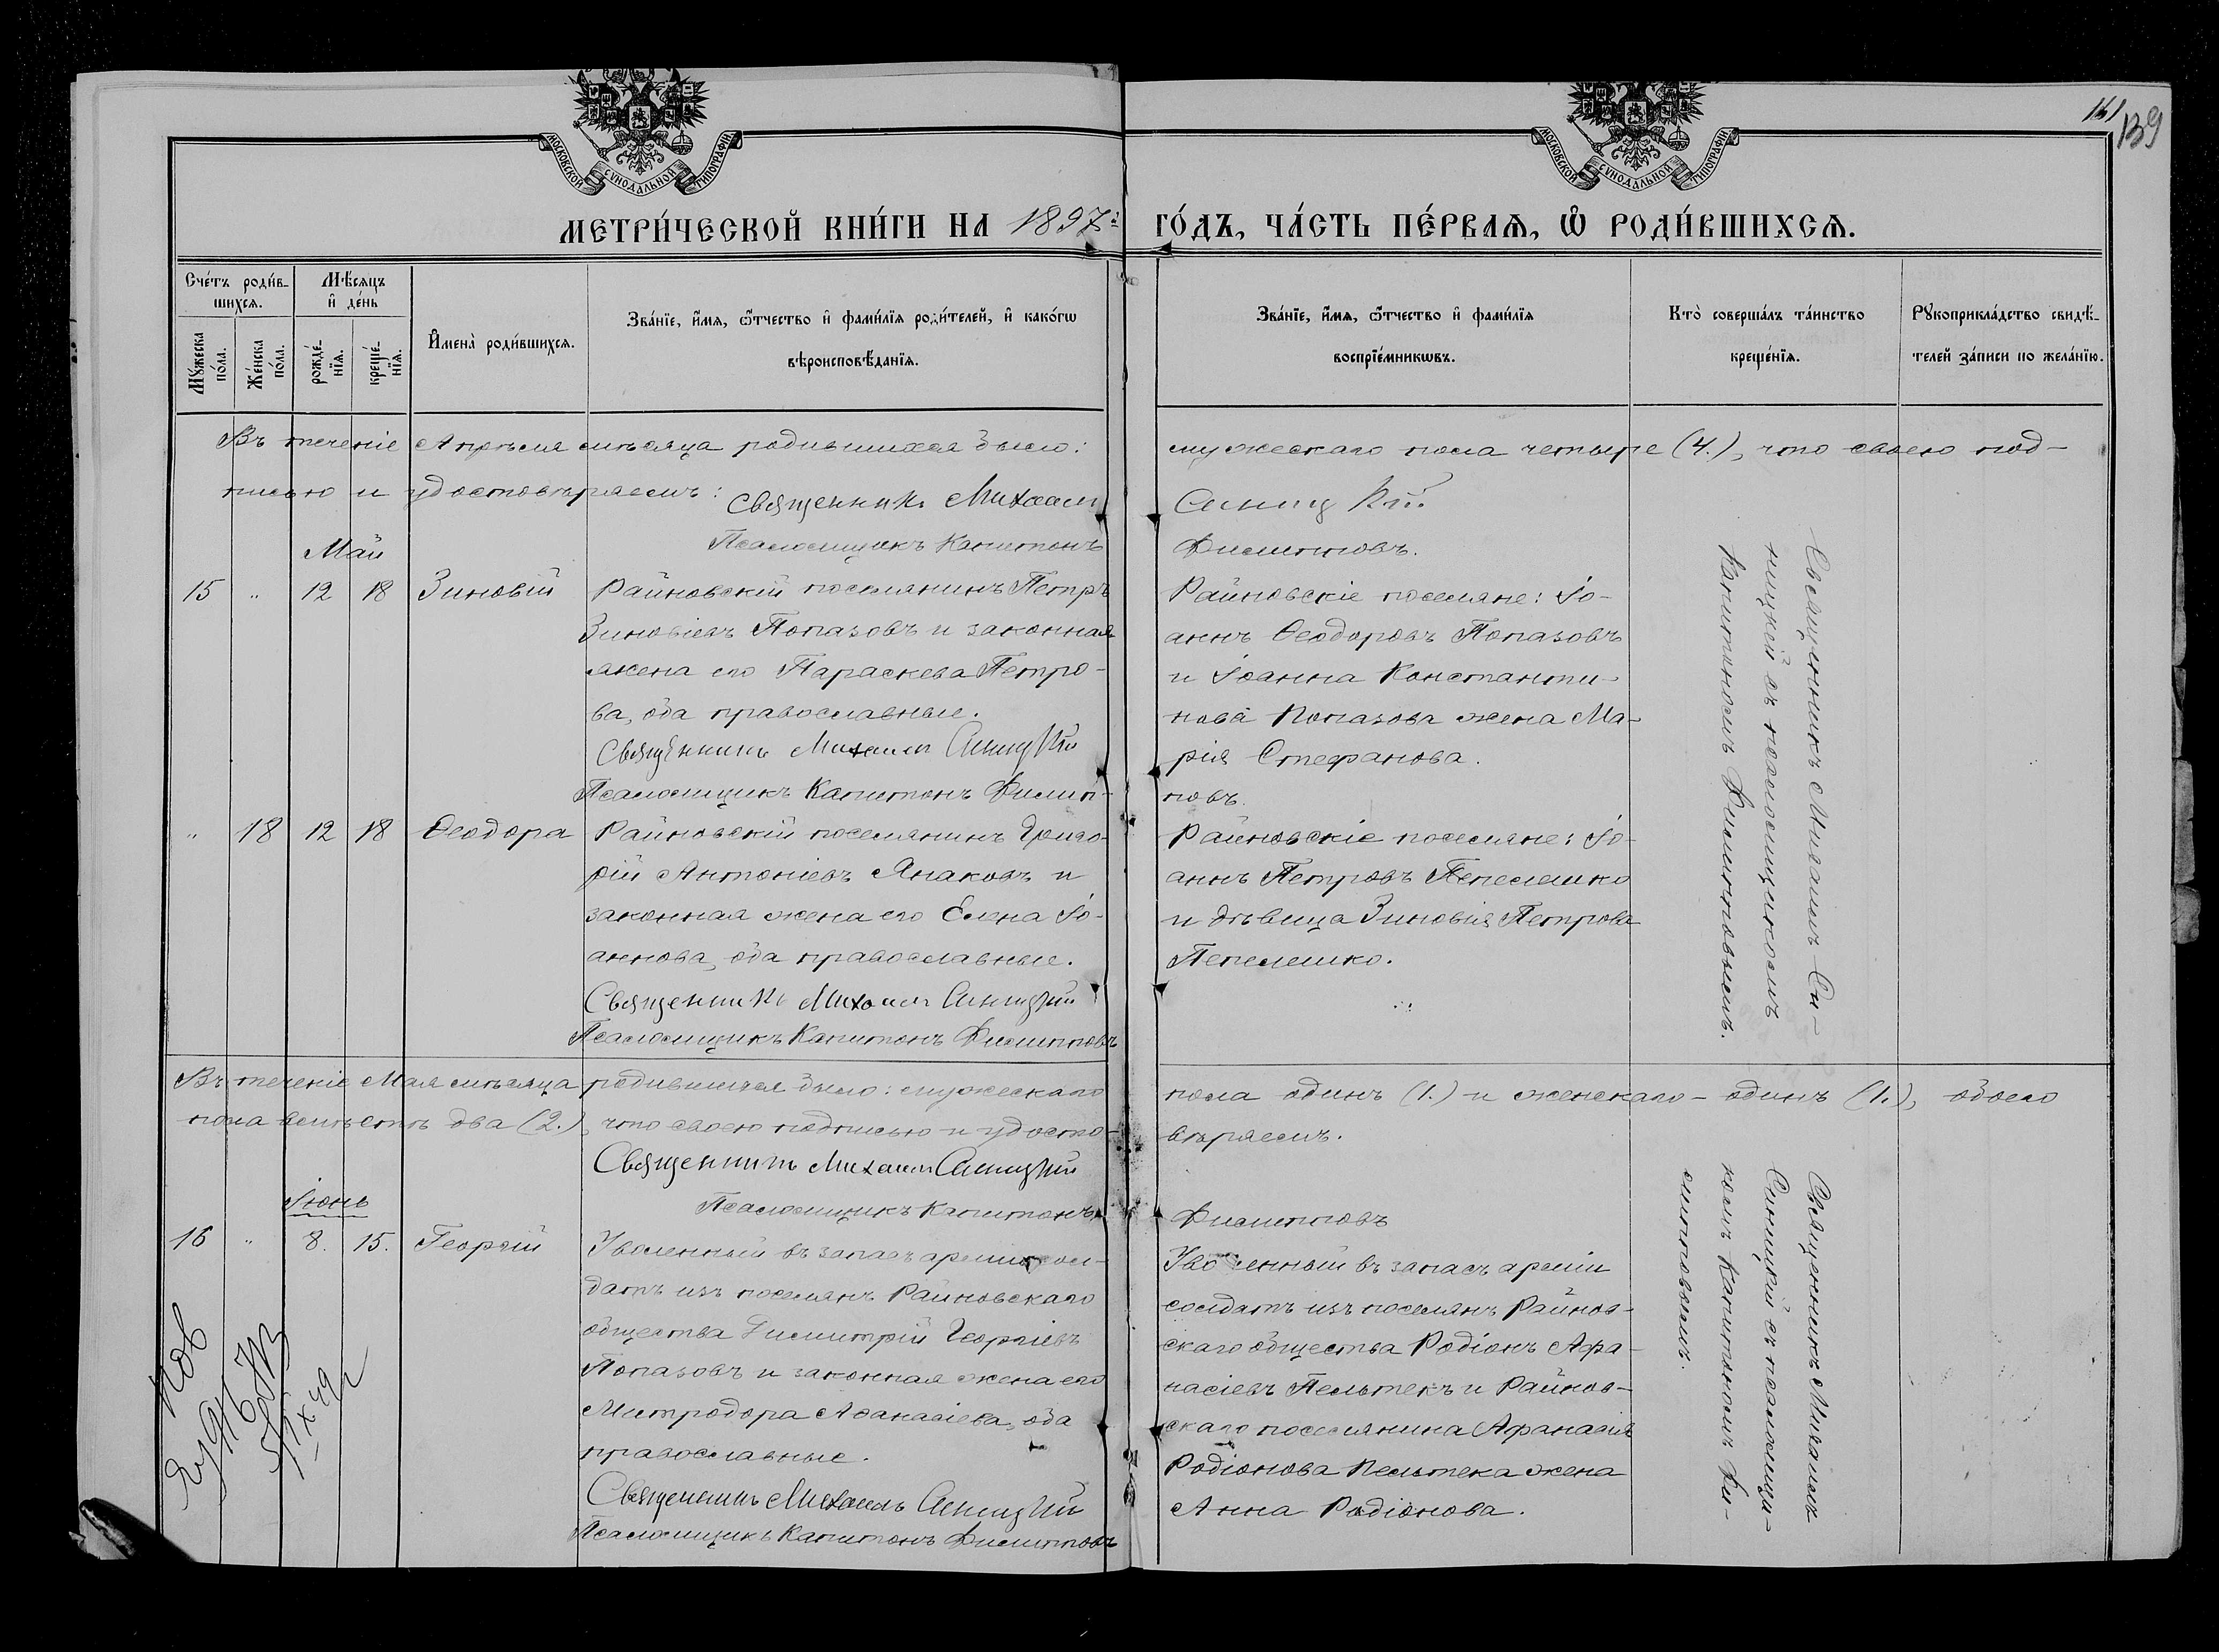 161
139
МОСКОВСКОЙ СУНОДАЛЬНОЙ ТИПОГРАФІИ
МОСКОВСКОЙ СУНОДАЛЬНОЙ ТИПОГРАФІИ
МЕТРИ́ЧЕСКОЙ КНИ́ГИ НА 1897й ГО́ДЪ, ЧА́СТЬ ПЕ́РВАѦ, Ѡ РОДИ́ВШИХСѦ.
Сче́тъ роди́в-
шихсѧ.
Мꙋжеска по́ла.
Же́нска по́ла.
Мѣ́сѧцъ
и де́нь
рожде́-
нїѧ.
креще́-
нїѧ.
Имена̀ роди́вшихсѧ.
Зва́нїе, и́мѧ, ѻ҆́тчество и фами́лїѧ роди́телей, и како́гѡ
вѣроисповѣ́данїѧ.
Зва́нїе, и́мѧ, ѻ҆́тчество и фами́лїѧ
воспрїе́мникѡвъ.
Кто̀ соверша́лъ та́инство
креще́нїѧ.
Рꙋкоприкла́дство свидѣ́-
телей за́писи по жела́нїю.
Въ теченіе Апрѣля мѣсяца родившихся было: мужескаго пола четыре (4.), что своею под-
писью и удостовѣряемъ: Священникъ Михаилъ Синицкій.
Псаломщикъ Капитонъ Филипповъ.
Май
15 " 12 18 Зиновій
Райновскій поселянинъ Петръ
Зиновіевъ Попазовъ и законная
жена его Параскева Петро-
ва, оба православные.
Священникъ Михаилъ Синицкій
Псаломщикъ Капитонъ Филип-
повъ.
Райновскіе поселяне: Іо-
аннъ Ѳеодоровъ Попазовъ
и Іоанна Константи-
нова Попазова жена Ма-
рія Стефанова.
Священникъ Михаилъ Си-
ницкій съ псаломщикомъ
Капитономъ Филипповымъ.
" 18 12 18 Ѳеодора
Райновскій поселянинъ Григо-
рій Антоніевъ Янаковъ и
законная жена его Елена Іо-
аннова, оба православные.
Священникъ Михаилъ Синицкій
Псаломщикъ Капитонъ Филипповъ
Райновскіе поселяне: Іо-
аннъ Петровъ Пепелешко
и дѣвица Зиновія Петрова
Пепелешко.
Въ теченіе Мая мѣсяца родившихся было: мужескаго пола одинъ (1.) и женскаго - одинъ (1.), обоего
пола вмѣстѣ два (2.), что своею подписью и удосто-
вѣряемъ.
Священникъ Михаилъ Синицкій
Псаломщикъ Капитонъ Филипповъ
Іюнь
16 " 8. 15. Георгій
Уволенный въ запасъ арміи сол-
датъ изъ поселянъ Райновскаго
общества Димитрій Георгіевъ
Попазовъ и законная жена его
Митродора Аѳанасіева, оба
православные.
Священникъ Михаилъ Синицкій
Псаломщикъ Капитонъ Филипповъ
Уволенный въ запасъ арміи
солдатъ изъ поселянъ Райнов-
скаго общества Родіонъ Афа-
насіевъ Пельтекъ и Райнов-
скаго поселянина Афанасія
Родіонова Пельтека жена
Анна Родіонова.
Священникъ Михаилъ
Синицкій съ псаломщи-
комъ Капитономъ Фи-
липповымъ.